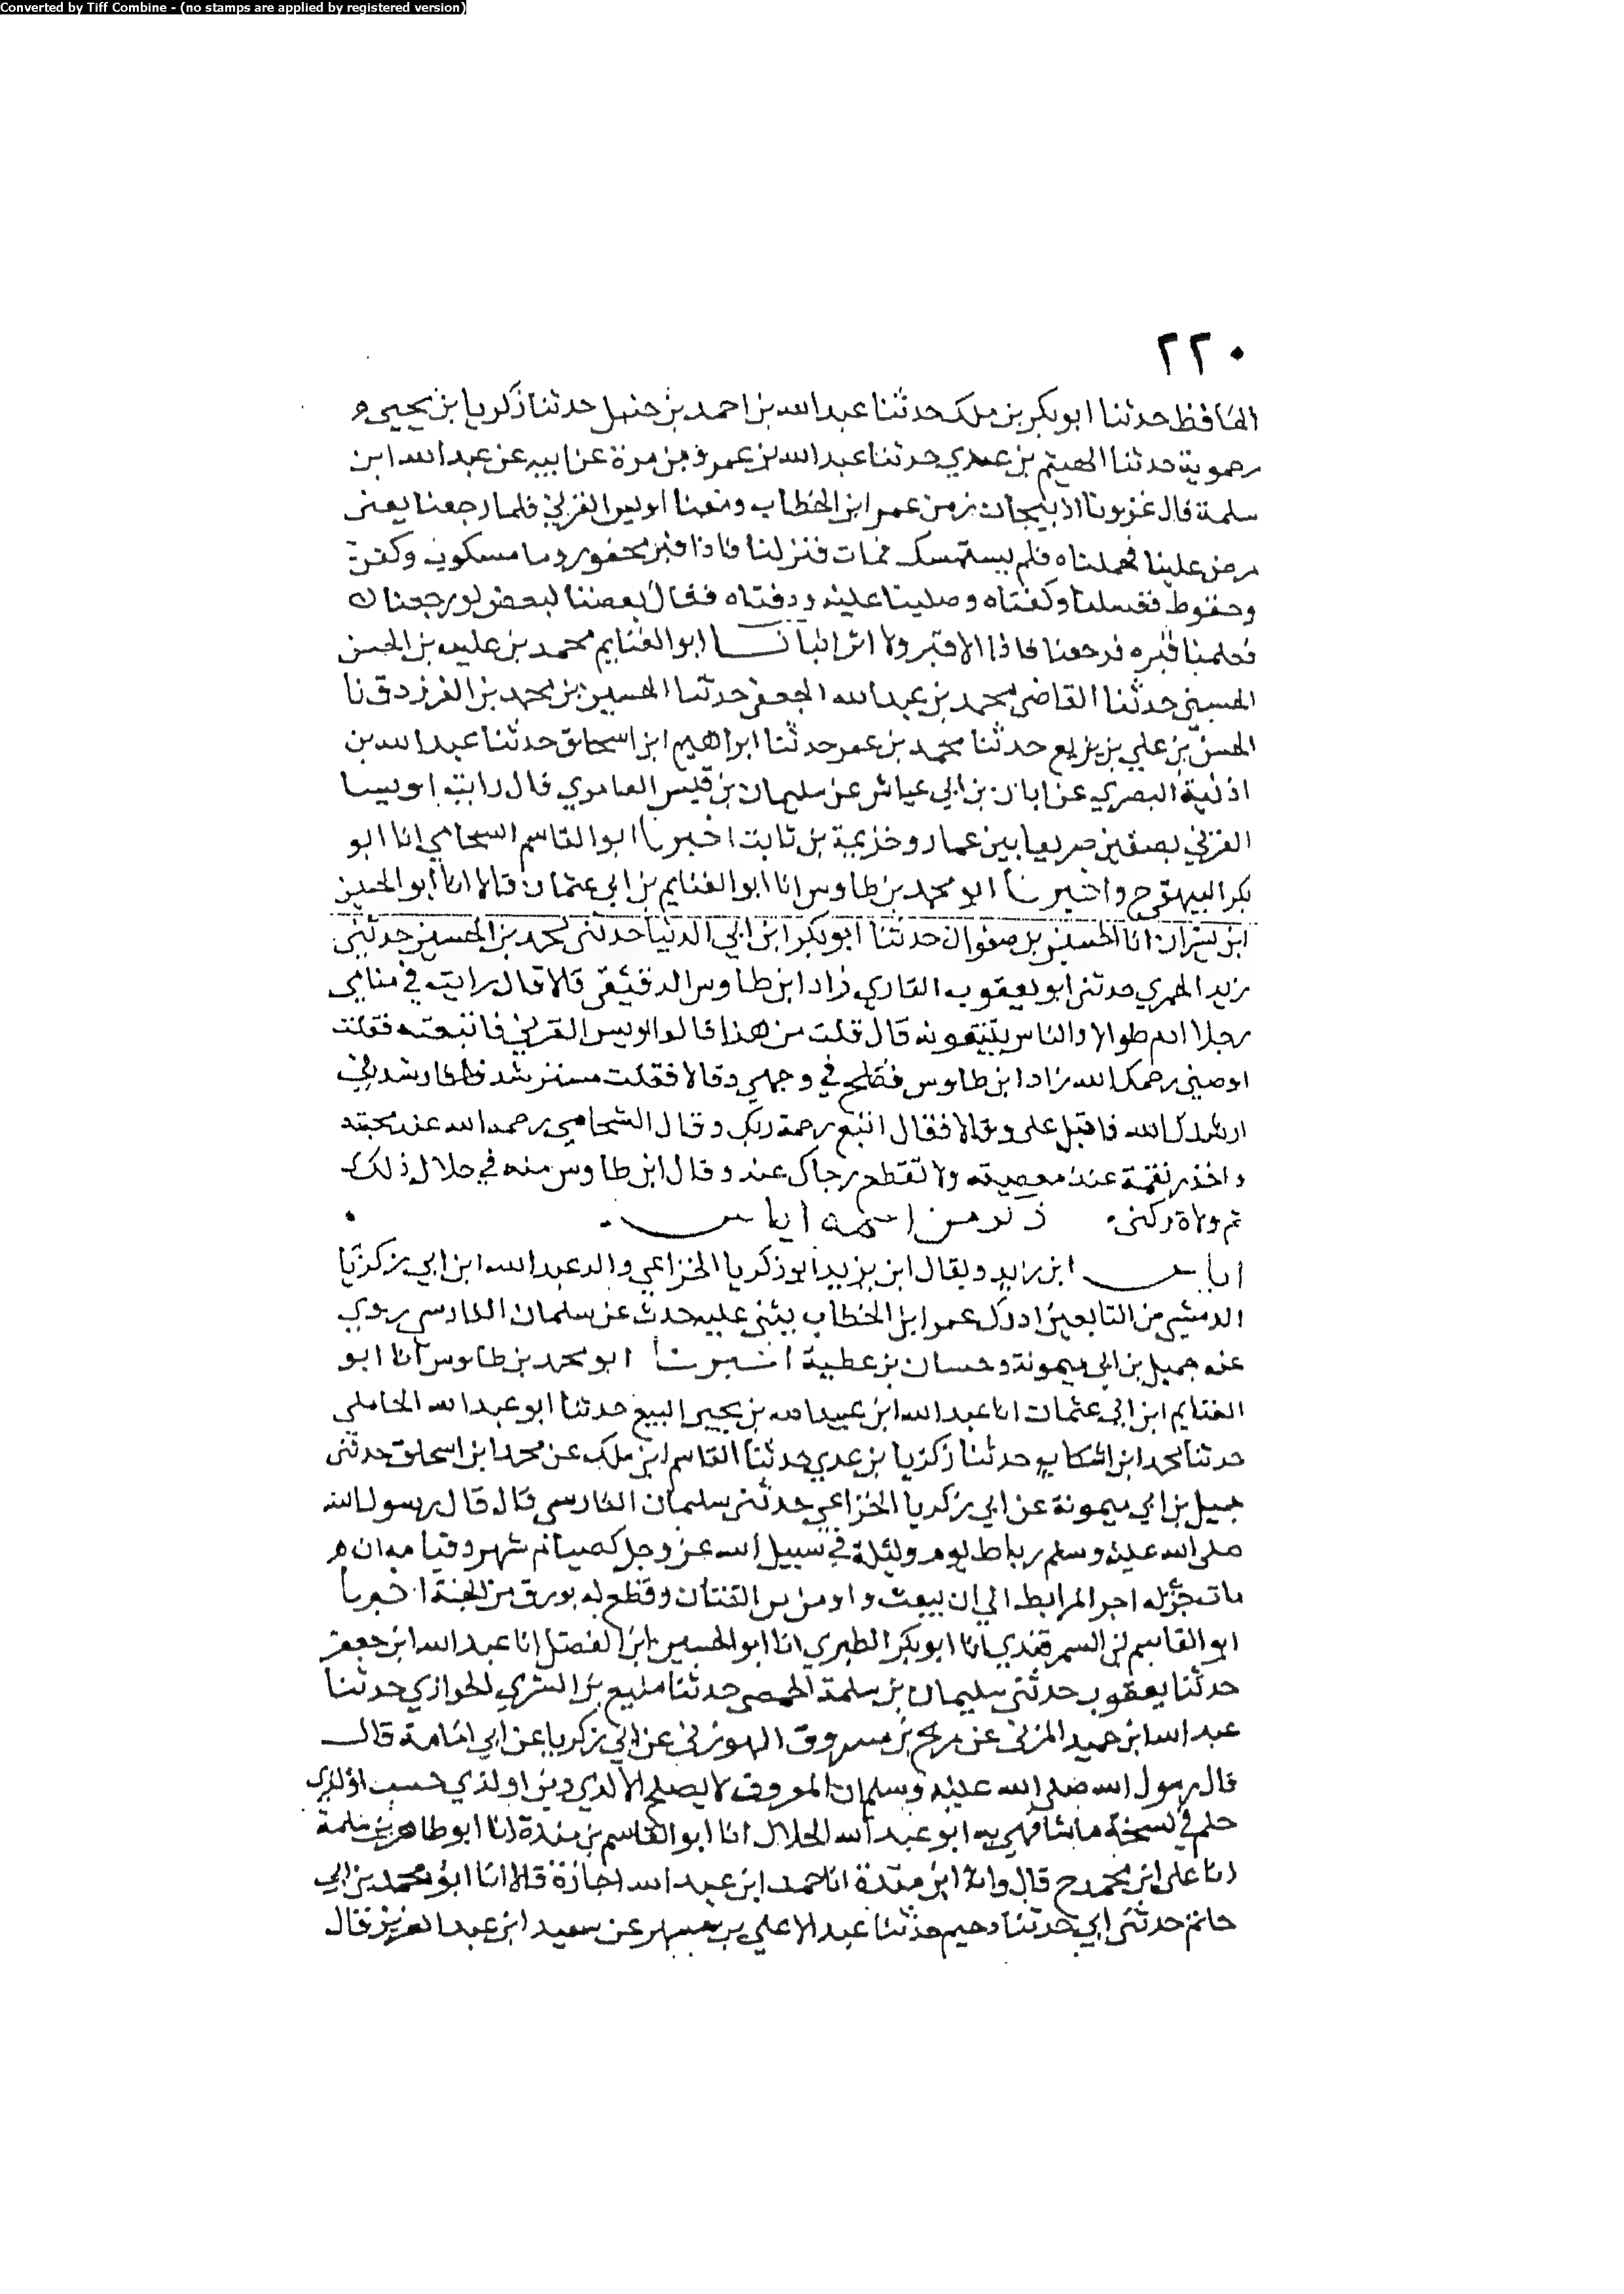 Converted by Tiff Combine - (no stamps are applied by registered version)
٢٢٠
الحافظ حدثنا ابو بكر بن ملك حدثنا عبد الله بن احمد بن حنبل حدثنا زكريا بن يحيى
رحموية حدثنا الهيثم بن عدي حدثنا عبد الله بن عمرو بن مرة عن ابيه عن عبد الله ابن
سلمة قال غزونا اذبيجان زمن عمر ابن الخطاب ومعنا اويس القرني فلما رجعنا يعني
مرض علينا فحملناه فلم يستمسك فمات فنزلنا فاذا قبر محفور وما مسكوب وكفن
وحنوط فغسلناه وكفناه وصلينا عليه ودفناه فقال بعضنا لبعض لو رجعنا
فعلمنا قبره فرجعنا فاذا لا قبر ولا اثر انبانا ابو الغنايم محمد بن علي بن الحسن
الحسيني حدثنا القاضي محمد بن عبد الله الجعفي حدثنا الحسين بن محمد بن الفرزدق نا
الحسن بن علي بن بزيع حدثنا محمد بن عمر حدثنا ابراهيم ابن اسحاق حدثنا عبد الله بن
اذنية البصري عن ابان بن ابي عياش عن سليمان بن قيس العامري قال رايت اويسا
القرني بصفين صريعا بين عمار وخزيمة بن ثابت اخبرنا ابو القاسم السحامي انا ابو
بكر البيهقي ح واخبرنا ابو محمد بن طاوس انا ابو الغنايم بن ابي عثمان قالا انا ابو الحسين
ابن بشران انا الحسين بن صفوان حدثنا ابو بكر ابن ابي الدنيا حدثني محمد بن الحسين حدثني
زيد الحمري حدثني ابو يعقوب القاري زاد ابن طاوس الدقيقي قالا قال رايت في منامي
رجلا ادم طوالا والناس يتبعونه قال قلت من هذا قالوا اويس القرني فاتبعته فقلت
اوصني رحمك الله زاد ابن طاوس فكلح في وجهي وقالا فقلت مسترشد فارشدني
ارشدك الله فاقبل علي وقالا فقال اتبع رحمة ربك وقال الشحامي رحمه الله عند محبته
واحذر نقمة عند معصيته ولا تقطع رجاك عنه وقال ابن طاوس منه في خلال ذلك
ثم ولا وتركني ذكر من اسمه اياس
اياس ابن زايد ويقال ابن يزيد ابو زكريا الخزاعي والد عبد الله ابن ابي زكريا
الدمشقي من التابعين ادرك عمر ابن الخطاب يثني عليه حدث عن سلمان الفارسي روي
عنه جميل بن ابي ميمونة وحسان بن عطية اخبرنا ابو محمد بن طاوس انا ابو
الغنايم ابن ابي عثمان انا عبد الله ابن عبيد الله بن يحيى البيع حدثنا ابو عبد الله المحاملي
حدثنا محمد ابن اشكاب حدثنا زكريا بن عدي حدثنا القاسم ابن ملك عن محمد ابن اسحاق حدثني
جميل بن ابي ميمونة عن ابي زكريا الخزاعي حدثني سلمان الفارسي قال قال رسول الله
صلى الله عليه وسلم رباط يوم وليلة في سبيل الله عز وجل كصيام شهر وقيامه ان
مات جزله اجر المرابط الي ان يبعث واومن من الفتان وقطع له بورق من الجنة اخبرنا
ابو القاسم بن السمرقندي انا ابو بكر الطبري انا ابو الحسين ابن الفضل انا عبد الله ابن جعفر
حدثنا يعقوب حدثني سليمان بن سلمة الحمصي حدثنا منيع بن السري الحوازي حدثنا
عبد الله ابن حميد المزني عن مريح بن مسروق الهوزني عن ابي زكريا عن ابي امامة قال
قال رسول الله صلى الله عليه وسلم ان المعروف لا يصلح الا لذي دين او لذي حسب او لذي
حلم في نسخة ما شافهني به ابو عبد الله الخلال انا ابو القاسم بن مندة انا ابو طاهر بن سلمة
انا علي ابن محمد ح قال وانا ابن مندة انا حمد ابن عبد الله اجازة قالا انا ابو محمد بن ابي
حاتم حدثني ابي حدثنا دحيم حدثنا عبد الاعلي بن مسهر عن سعيد ابن عبد العزيز قال